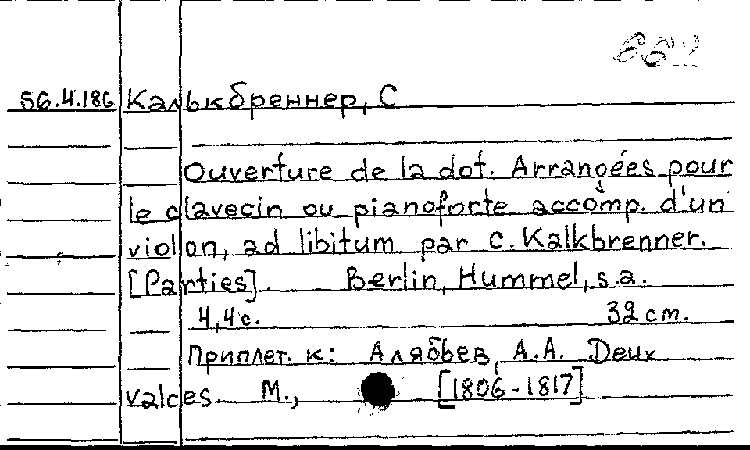 662
56.4.186 Калькбреннер, С
Ouverture de la dot. Arrangées pour
le clavecin ou pianoforte accomp. d'un
violon, ad libitum par C. Kalkbrenner.
[Parties]. Berlin, Hummel, s.a.
4,4 с. 32 cm.
Приплет. к: Алябьев, А.А. Deux
valces. М., [1806-1817]